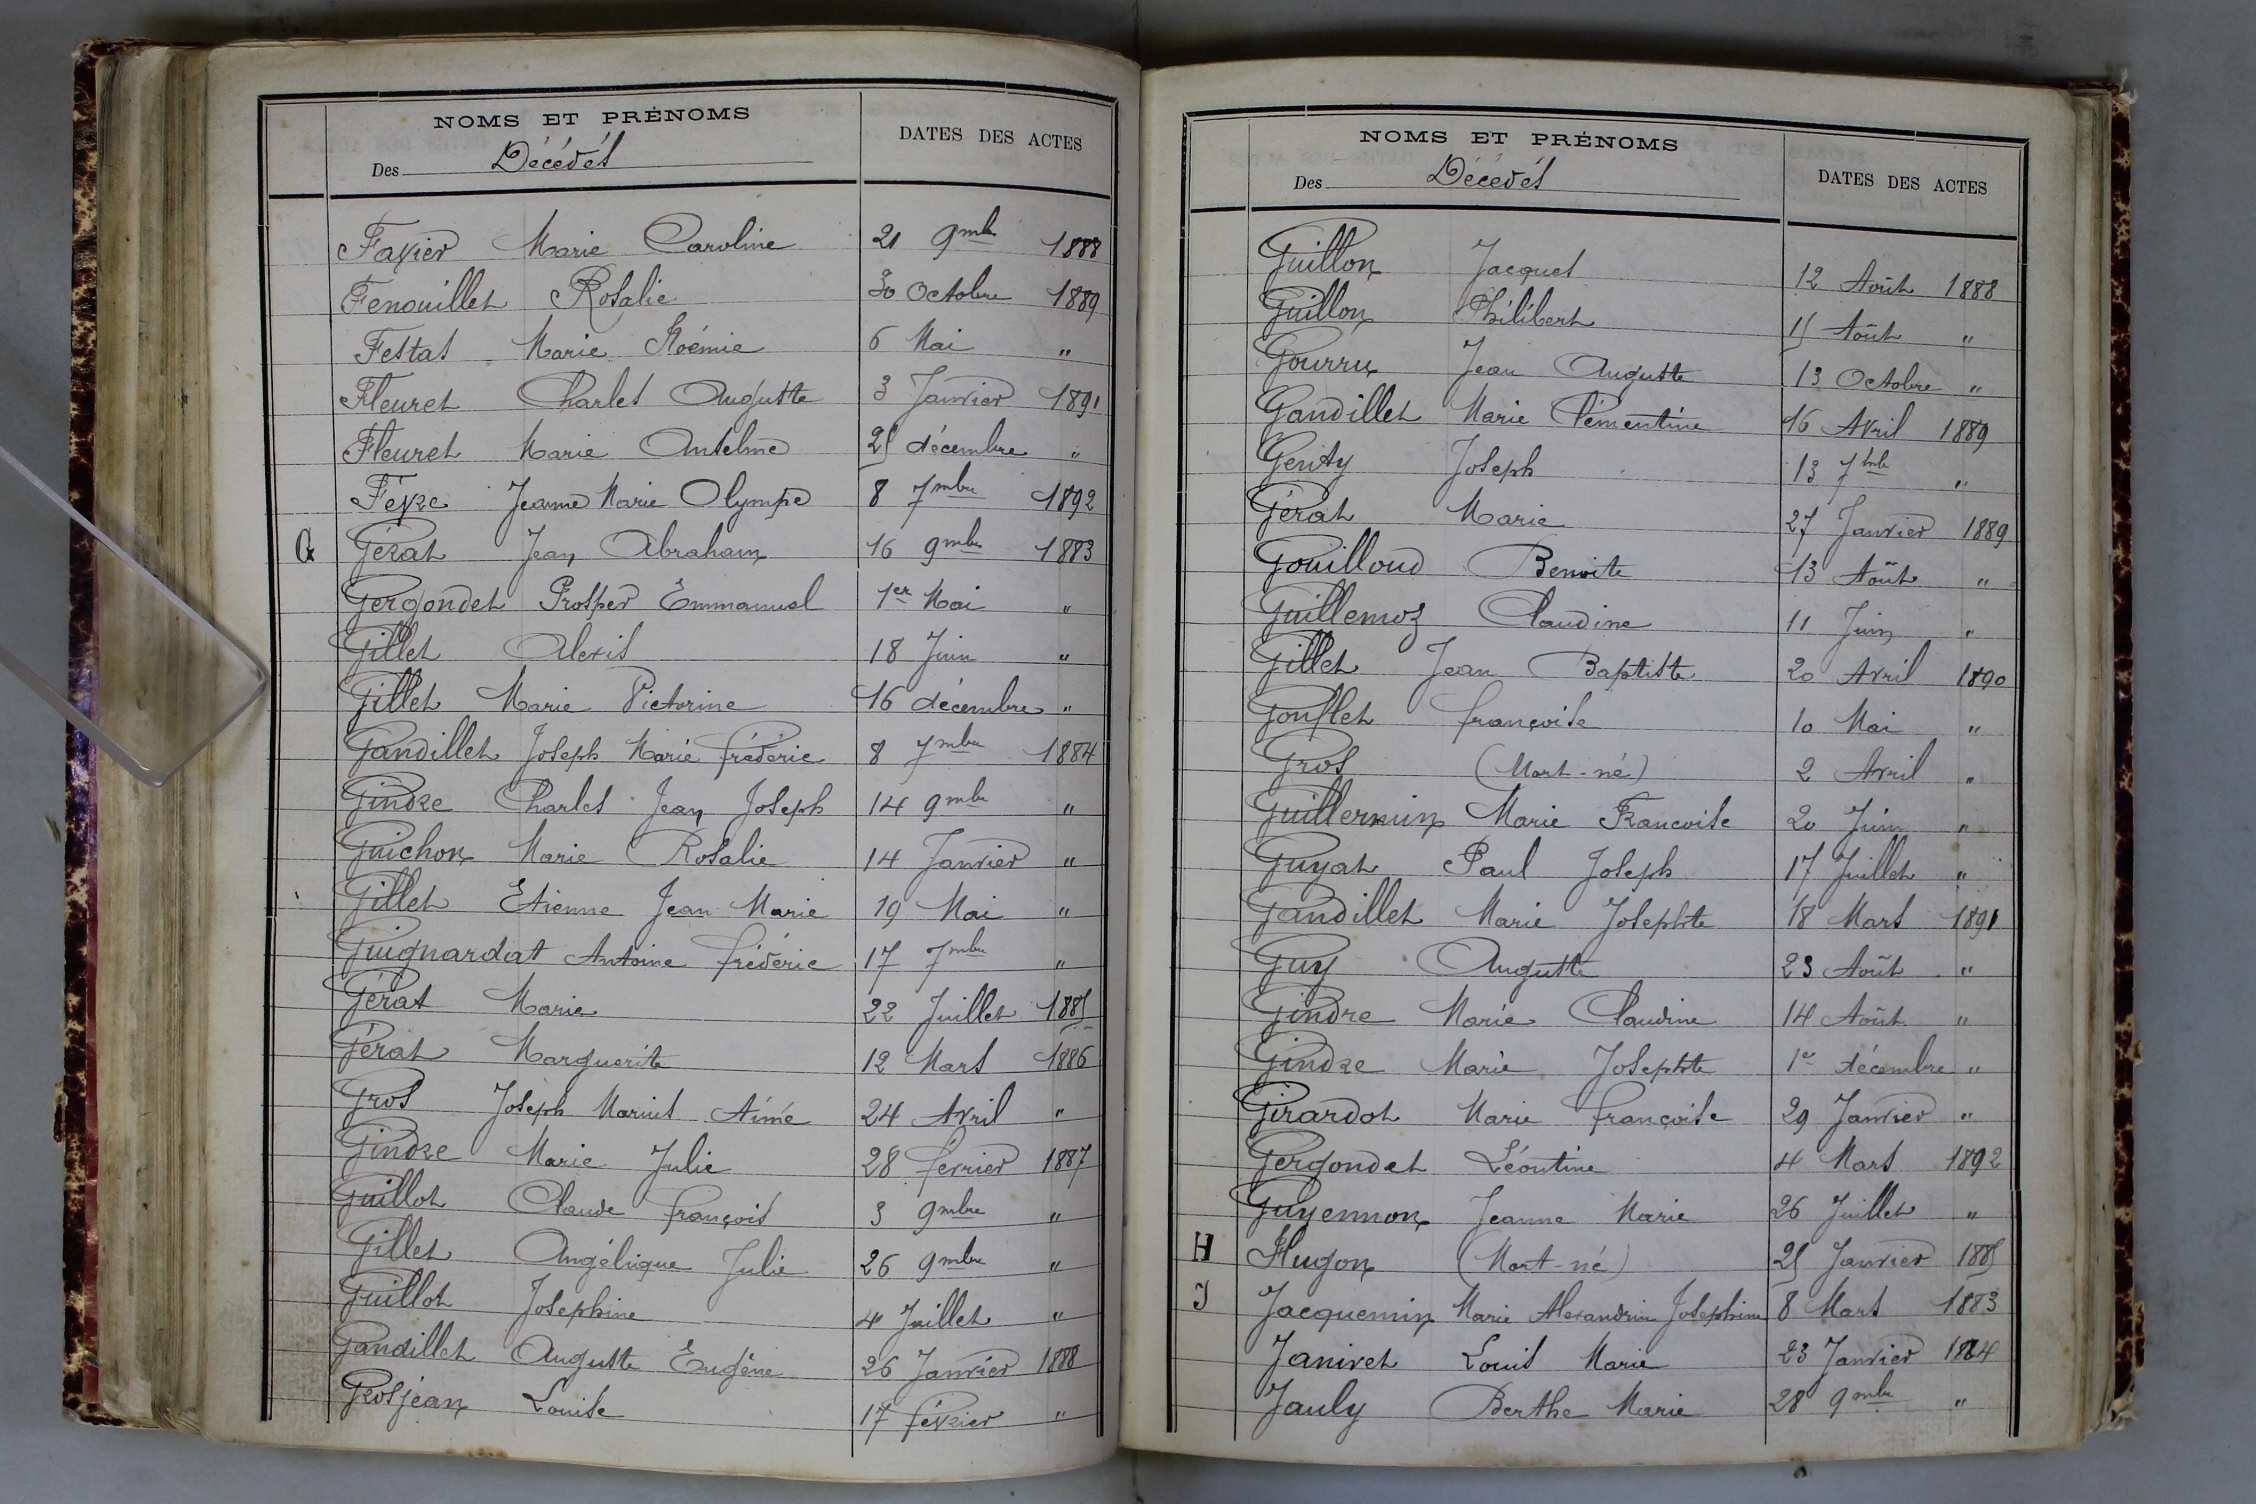 NOMS ET PRÉNOMS
Des Décédés
DATES DES ACTES
Favier Marie Caroline 21 9mbre 1888
Fenouillet Rosalie 30 Octobre 1889
Festas Marie Noémie 6 Mai "
Fleuret Charles Auguste 3 Janvier 1891
Fleuret Marie Anselme 25 décembre "
Fèvre Jeanne Marie Olympe 8 7mbre 1892
G Gérat Jean Abraham 16 9mbre 1883
Gergondet Prosper Emmanuel 1er Mai "
Gillet Alexis 18 Juin "
Gillet Marie Victorine 16 décembre "
Gandillet Joseph Marie frédéric 8 7mbre 1884
Gindre Charles Jean Joseph 14 9mbre "
Guichon Marie Rosalie 14 Janvier "
Gillet Etienne Jean Marie 19 Mai "
Guignardat Antoine frédéric 17 7mbre "
Gérat Marie 22 Juillet 1885
Gérat Marguerite 12 Mars 1886
Gros Joseph Marius Aimé 24 Avril "
Gindre Marie Julie 28 février 1887
Guillot Claude françois 3 9mbre "
Gillet Angélique Julie 26 9mbre "
Guillot Josephine 4 Juillet "
Gandillet Auguste Eugène 26 Janvier 1888
Grosjean Louise 17 février "
NOMS ET PRÉNOMS
Des Décédés
DATES DES ACTES
Guillon Jacques 12 Août 1888
Guillon Philibert 15 Août "
Gourru Jean Auguste 13 Octobre "
Gandillet Marie Clémentine 16 Avril 1889
Genty Joseph 13 7bre "
Gérat Marie 27 Janvier 1889
Gouilloud Benoite 13 Août "
Guillemoz Claudine 11 Juin "
Gillet Jean Baptiste 20 Avril 1890
Gonflet françoise 10 Mai "
Gros (Mort-né) 2 Avril "
Guillermin Marie Francoise 20 Juin "
Guyat Paul Joseph 17 Juillet "
Gandillet Marie Josephte 18 Mars 1891
Guy Auguste 23 Août "
Gindre Marie Claudine 14 Août "
Gindre Marie Josephte 1er décembre "
Girardot Marie françoise 29 Janvier "
Gergondet Léontine 4 Mars 1892
Guyennon Jeanne Marie 26 Juillet "
H Hugon (Mort-né) 25 Janvier 1885
J Jacquemin Marie Alexandrine Josephine 8 Mars 1883
Janivet Louis Marie 23 Janvier 1884
Jauly Berthe Marie 28 9mbre "